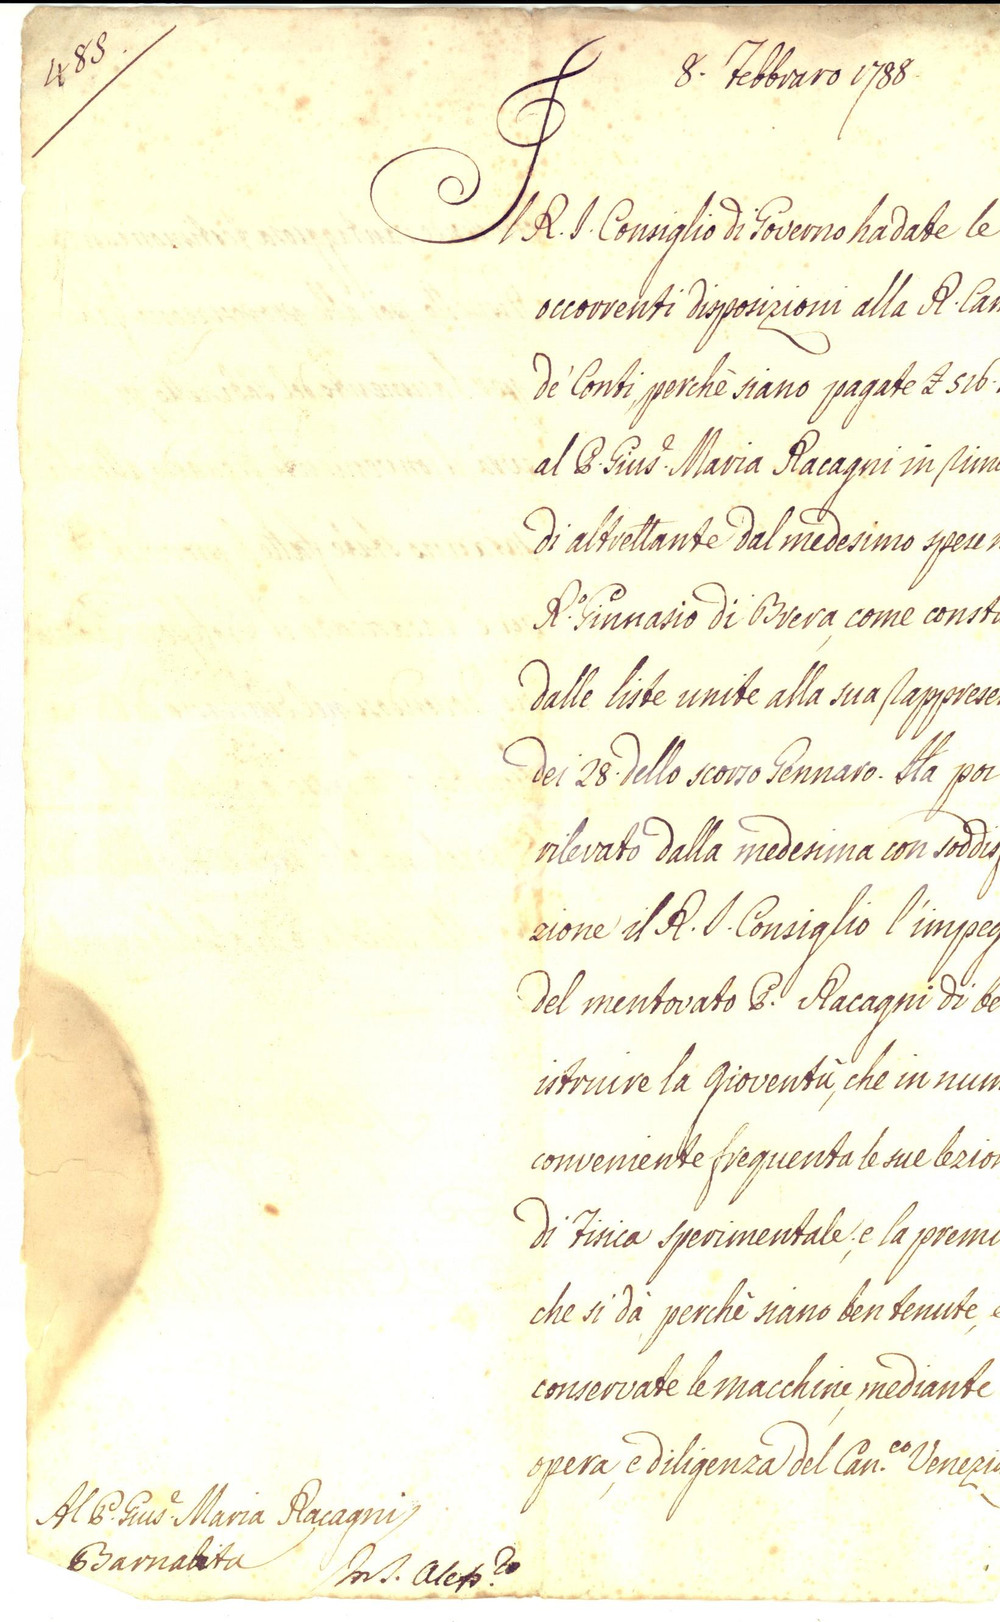 488.
8. Febbraro 1788.
Il R. I. Consiglio di Governo ha date le
occorrenti disposizioni alla R. Cam
de' Conti, perchè siano pagate £ 516.
al P. Gius.e Maria Racagni in rim
di altrettante dal medesimo spese n
R.o Ginnasio di Brera, come const
dalle liste unite alla sua rapprese
dei 28. dello scorso Gennaro. Ha poi
rilevato dalla medesima con soddisf
zione il R. I. Consiglio l'impeg
del mentovato P. Racagni di be
istruire la gioventù, che in num
conveniente frequenta le sue lezion
di Fisica sperimentale, e la premu
che si dà perchè siano ben tenute, e
conservate le macchine, mediante
opera, e diligenza del Can.co Venezia
Al P. Gius.e Maria Racagni
Barnabita
in S. Aless.ro